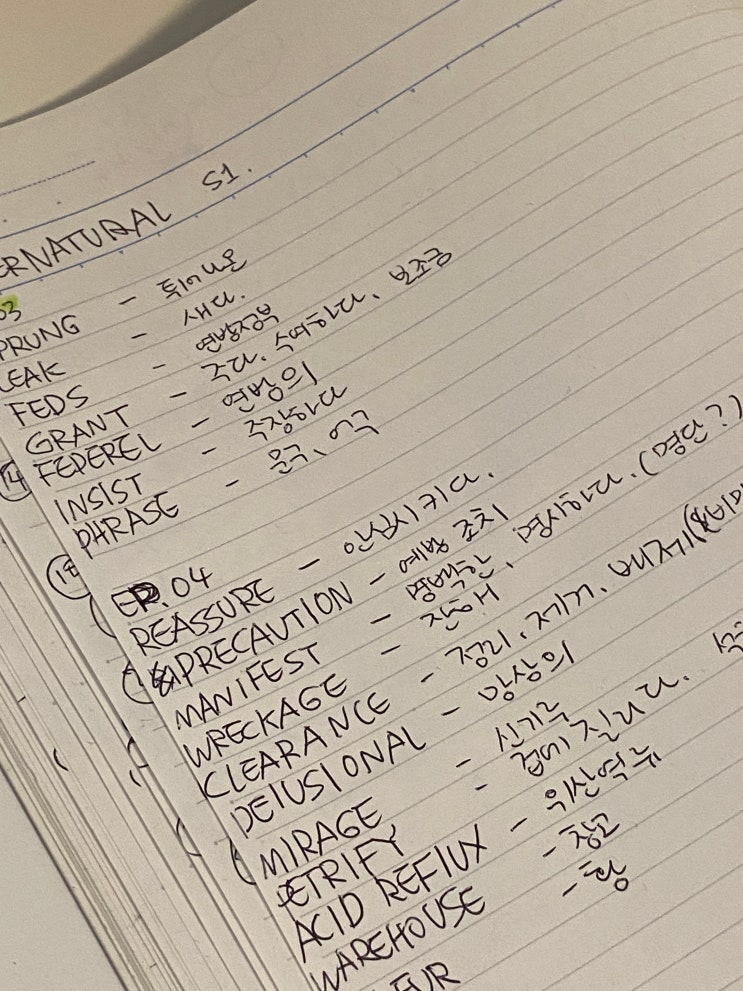 ERNATURAL S1.
03
PRUNG - 튀어나온
LEAK - 새다.
FEDS - 연방정부
GRANT - 주다. 수여하다. 보조금
14 FEDEREL - 연방의
INSIST - 주장하다
PHRASE - 문구, 어구
EP.04
REASSURE - 안심시키다.
PRECAUTION - 예방 조치
MANIFEST - 명백한, 명시하다. (명단?)
WRECKAGE - 잔해
CLEARANCE - 정리. 제거. 배제
DEIUSIONAL - 망상의
MIRAGE - 신기루
PETRIFY - 겁에 질리다.
ACID REFIUX - 위산역류
WAREHOUSE - 창고
FUR - 황